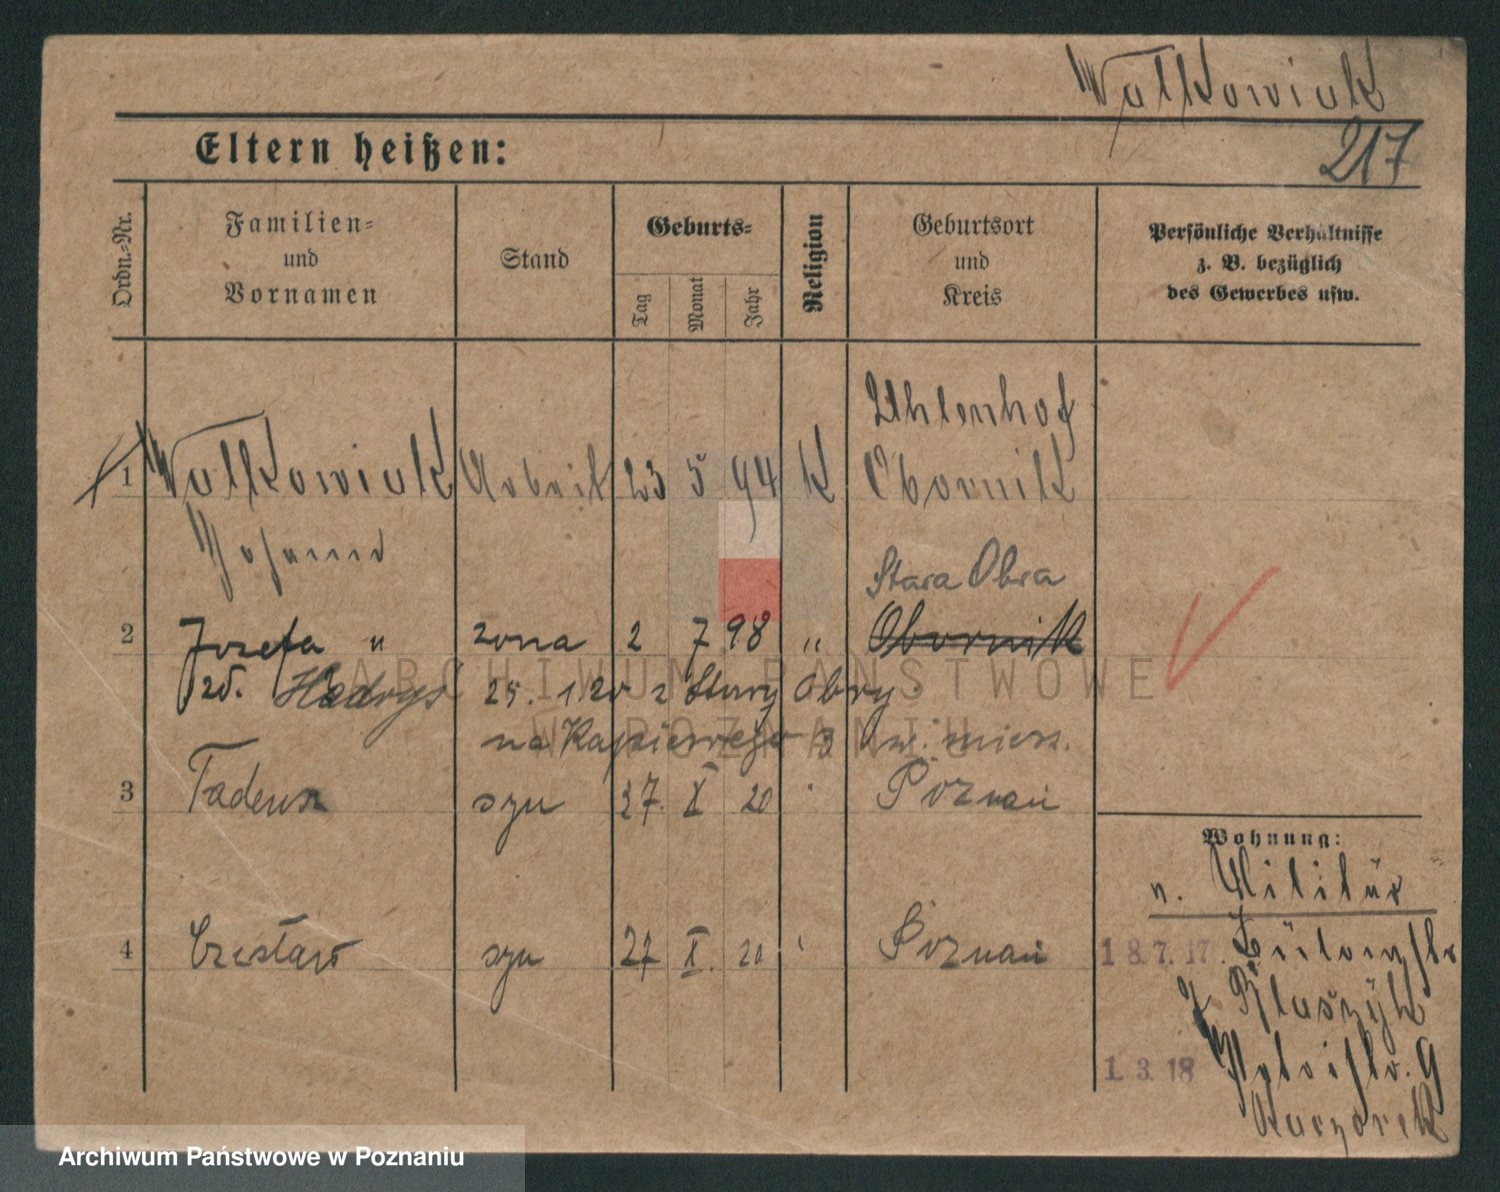 Walkowiak
217
Eltern heißen:
Ordn.-Nr.
Familien- und Vornamen
Stand
Geburts-
Tag
Monat
Jahr
Religion
Geburtsort und Kreis
Persönliche Verhältnisse z. B. bezüglich des Gewerbes usw.
Uhlenhof
1 Walkowiak Arbeit 23 5 94 K Obornik
Johann
Stara Obra
2 Józefa " żona 2 7 98 " Obornik
zd. 25. 1 20 z Stary Obry
na 3 miesz.
3 Tadeusz syn 27. X 20 Poznań
Wohnung:
n. Militär
4 Czesław syn 27 X. 20 Poznań
18.7.17.
b. Blaszyk
1.3.18
9
Kaczorek
ARCHIWUM PAŃSTWOWE
W POZNANIU
Archiwum Państwowe w Poznaniu